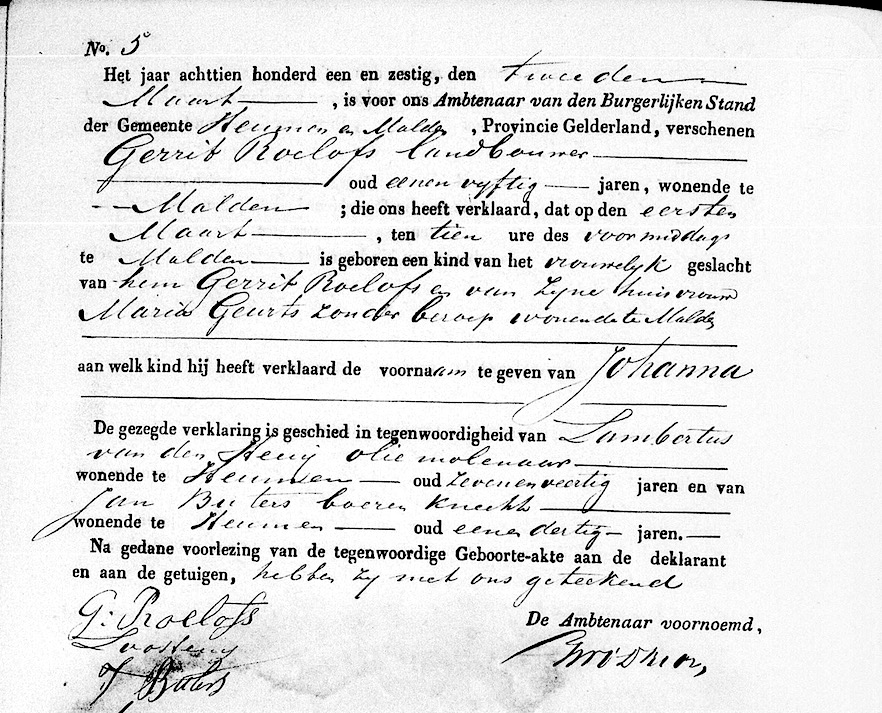 No. 5
Het jaar achttien honderd een en zestig, den tweeden
Maart , is voor ons Ambtenaar van den Burgerlijken Stand
der Gemeente Heumen en Malden , Provincie Gelderland, verschenen
Gerrit Roelofs landbouwer
oud eenen vyftig jaren, wonende te
Malden ; die ons heeft verklaard, dat op den eersten
Maart , ten tien ure des voormiddags
te Malden is geboren een kind van het vrouwelyk geslacht
van hem Gerrit Roelofs en van zyne huisvrouw
Maria Geurts zonder beroep wonende te Malden
aan welk kind hij heeft verklaard de voornaam te geven van Johanna
De gezegde verklaring is geschied in tegenwoordigheid van Lambertus
van den olie molenaar
wonende te Heumen oud zevenenveertig jaren en van
Jan Buters boeren knecht
wonende te Heumen oud eenendertig jaren.
Na gedane voorlezing van de tegenwoordige Geboorte-akte aan de deklarant
en aan de getuigen, hebben zy met ons geteekend
G. Roelofs
De Ambtenaar voornoemd,
J Buters